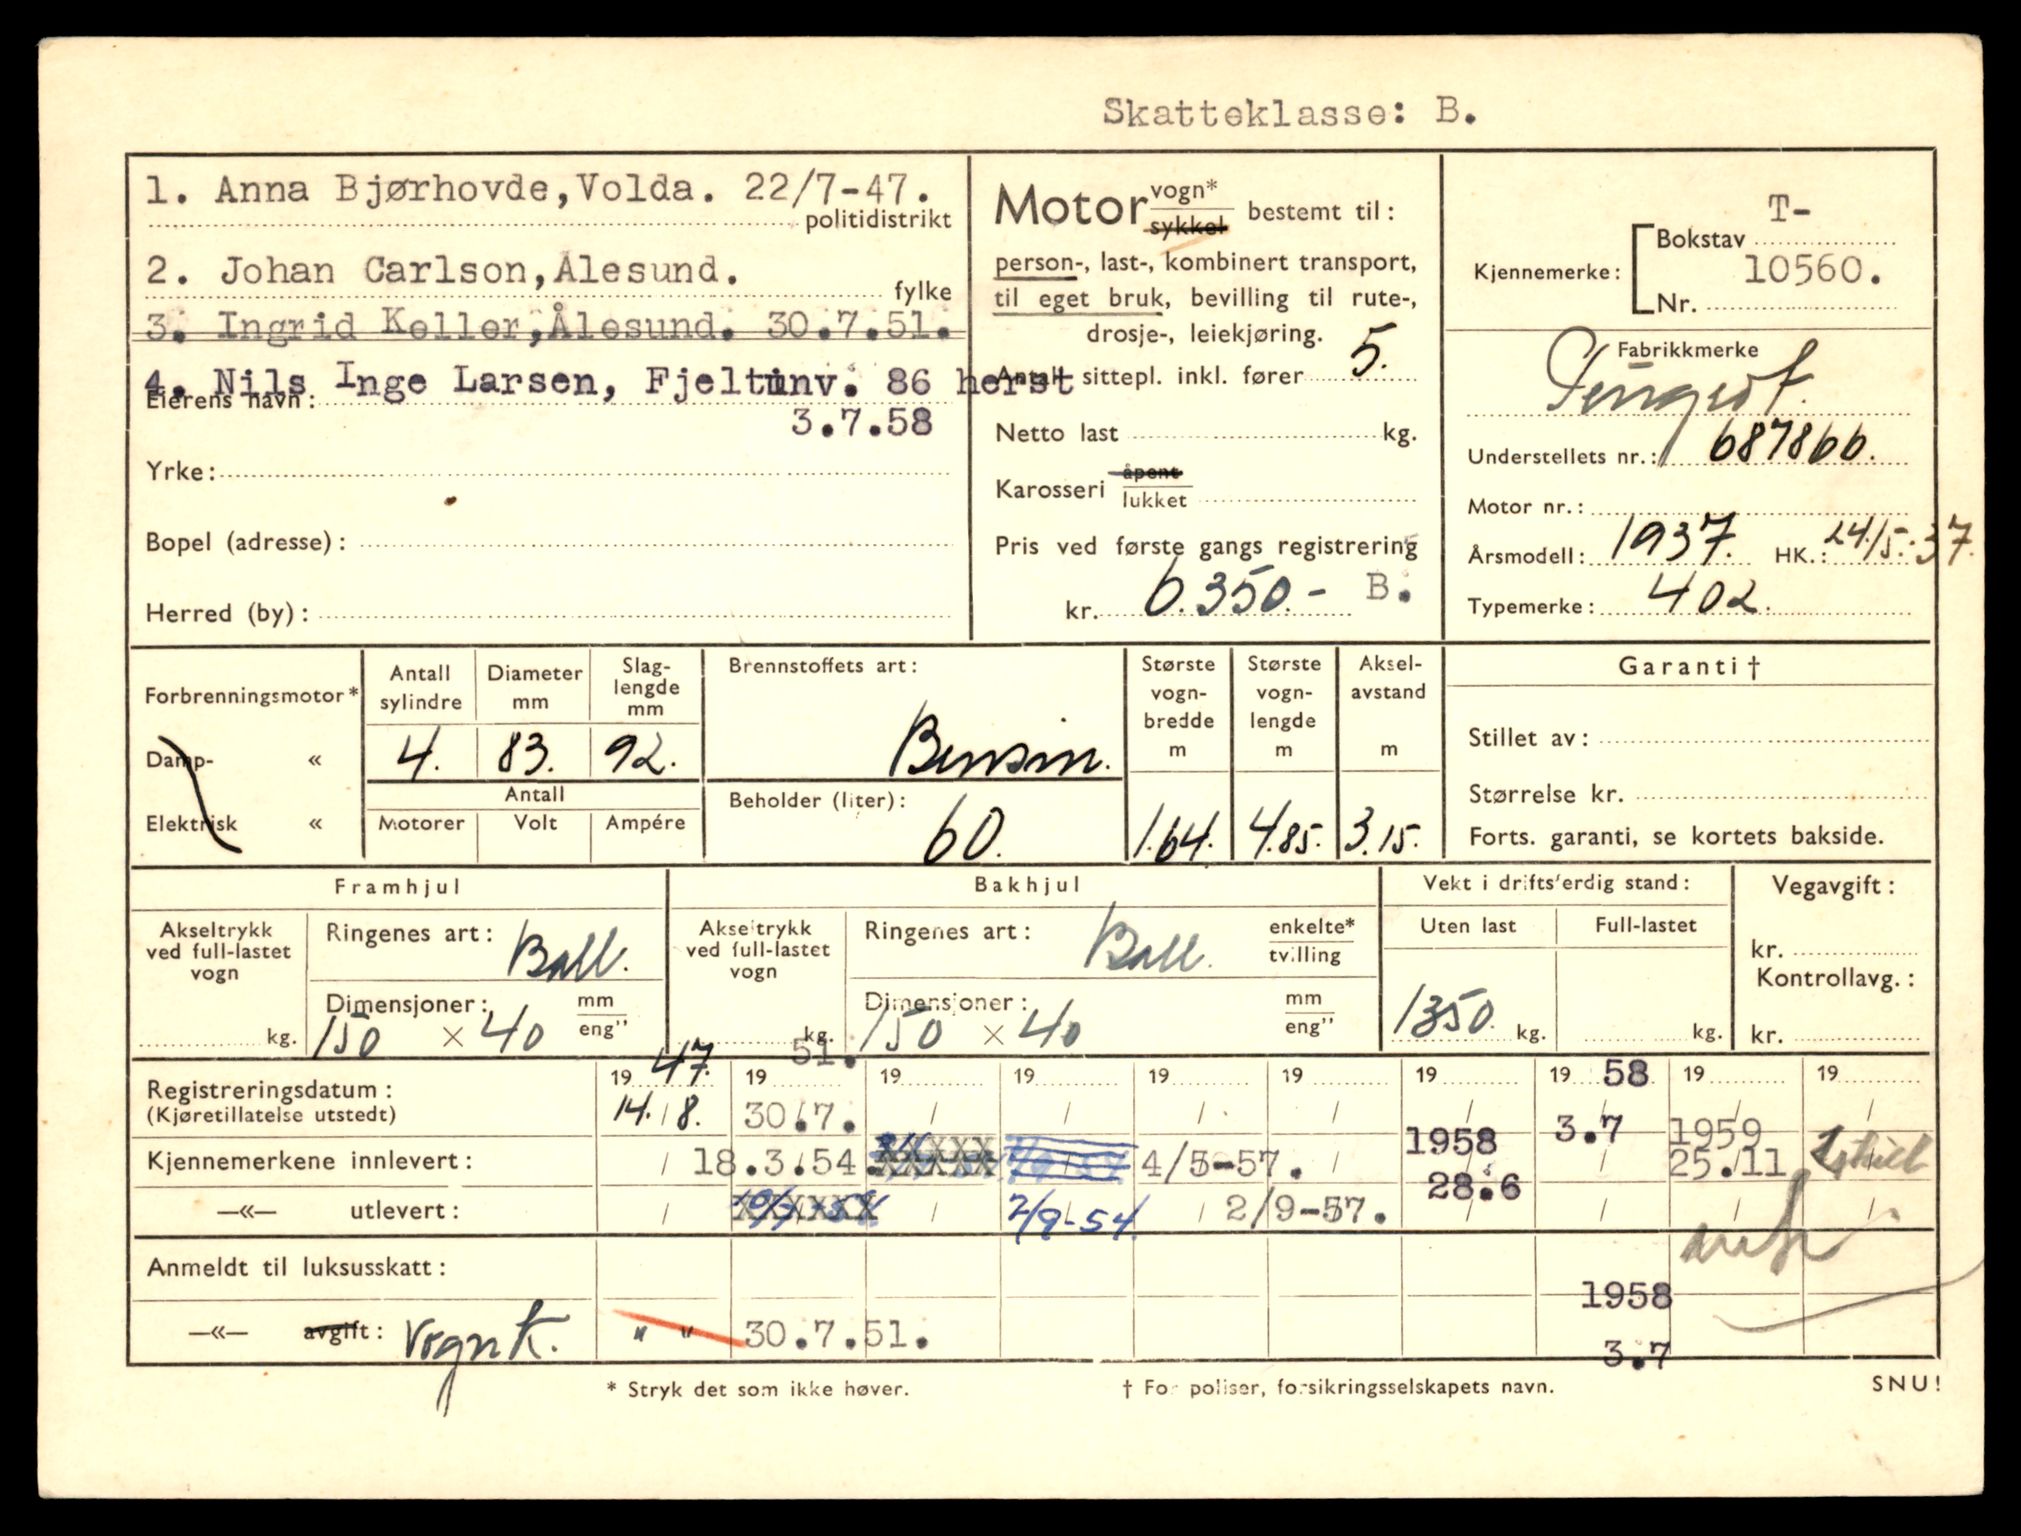 Skatteklasse: B.
1. Anna Bjørhovde,Volda. 22/7-47.
politidistrikt
2. Johan Carlson,Ålesund.
fylke
3. Ingrid Keller,Ålesund. 30.7.51.
4. Nils Inge Larsen, Fjeltunv. 86 herst
Eierens navn:
3.7.58
Yrke:
Bopel (adresse):
Herred (by):
Motor vogn*
sykkel bestemt til:
person-, last-, kombinert transport,
til eget bruk, bevilling til rute-,
drosje-, leiekjøring.
Antall sittepl. inkl. fører 5.
Netto last kg.
Karosseri åpent
lukket
Pris ved første gangs registrering
kr. 6.350.- B.
T-
Bokstav
Kjennemerke: 10560.
Nr.
Fabrikkmerke
Peugeot.
Understellets nr.: 687866.
Motor nr.:
Årsmodell: 1937. HK.: 24/5.-37.
Typemerke: 402.
Forbrenningsmotor*
Damp- «
Elektrisk «
Antall sylindre
Diameter mm
Slag-lengde mm
4. 83. 92.
Antall
Motorer Volt Ampére
Brennstoffets art:
Bensin.
Beholder (liter):
60.
Største vogn-bredde m
Største vogn-lengde m
Aksel-avstand m
1.64. 4.85. 3.15.
Garanti †
Stillet av:
Størrelse kr.
Forts. garanti, se kortets bakside.
Framhjul
Akseltrykk
ved full-lastet
vogn
kg.
Ringenes art: Ball.
Dimensjoner: mm
eng"
150 × 40
Bakhjul
Akseltrykk
ved full-lastet
vogn
kg.
Ringenes art: Ball. enkelte*
tvilling
Dimensjoner: mm
eng"
150 × 40
Vekt i driftsferdig stand:
Uten last Full-lastet
1350 kg. kg.
Vegavgift:
kr.
Kontrollavg.:
kr.
Registreringsdatum: 19 47. 19 51. 19 19 19 19 19 19 58 19 19
(Kjøretillatelse utstedt) 14./8. 30.7. / / / / / 3.7 / /
1958 1959
Kjennemerkene innlevert: / 18.3.54. 4/5-57. 28.6 25.11
—«— utlevert: / 2/9-54 2/9-57.
Anmeldt til luksusskatt:
1958
—«— avgift: Vognk. " " 30.7.51. 3.7
* Stryk det som ikke høver.
† For poliser, forsikringsselskapets navn.
SNU!